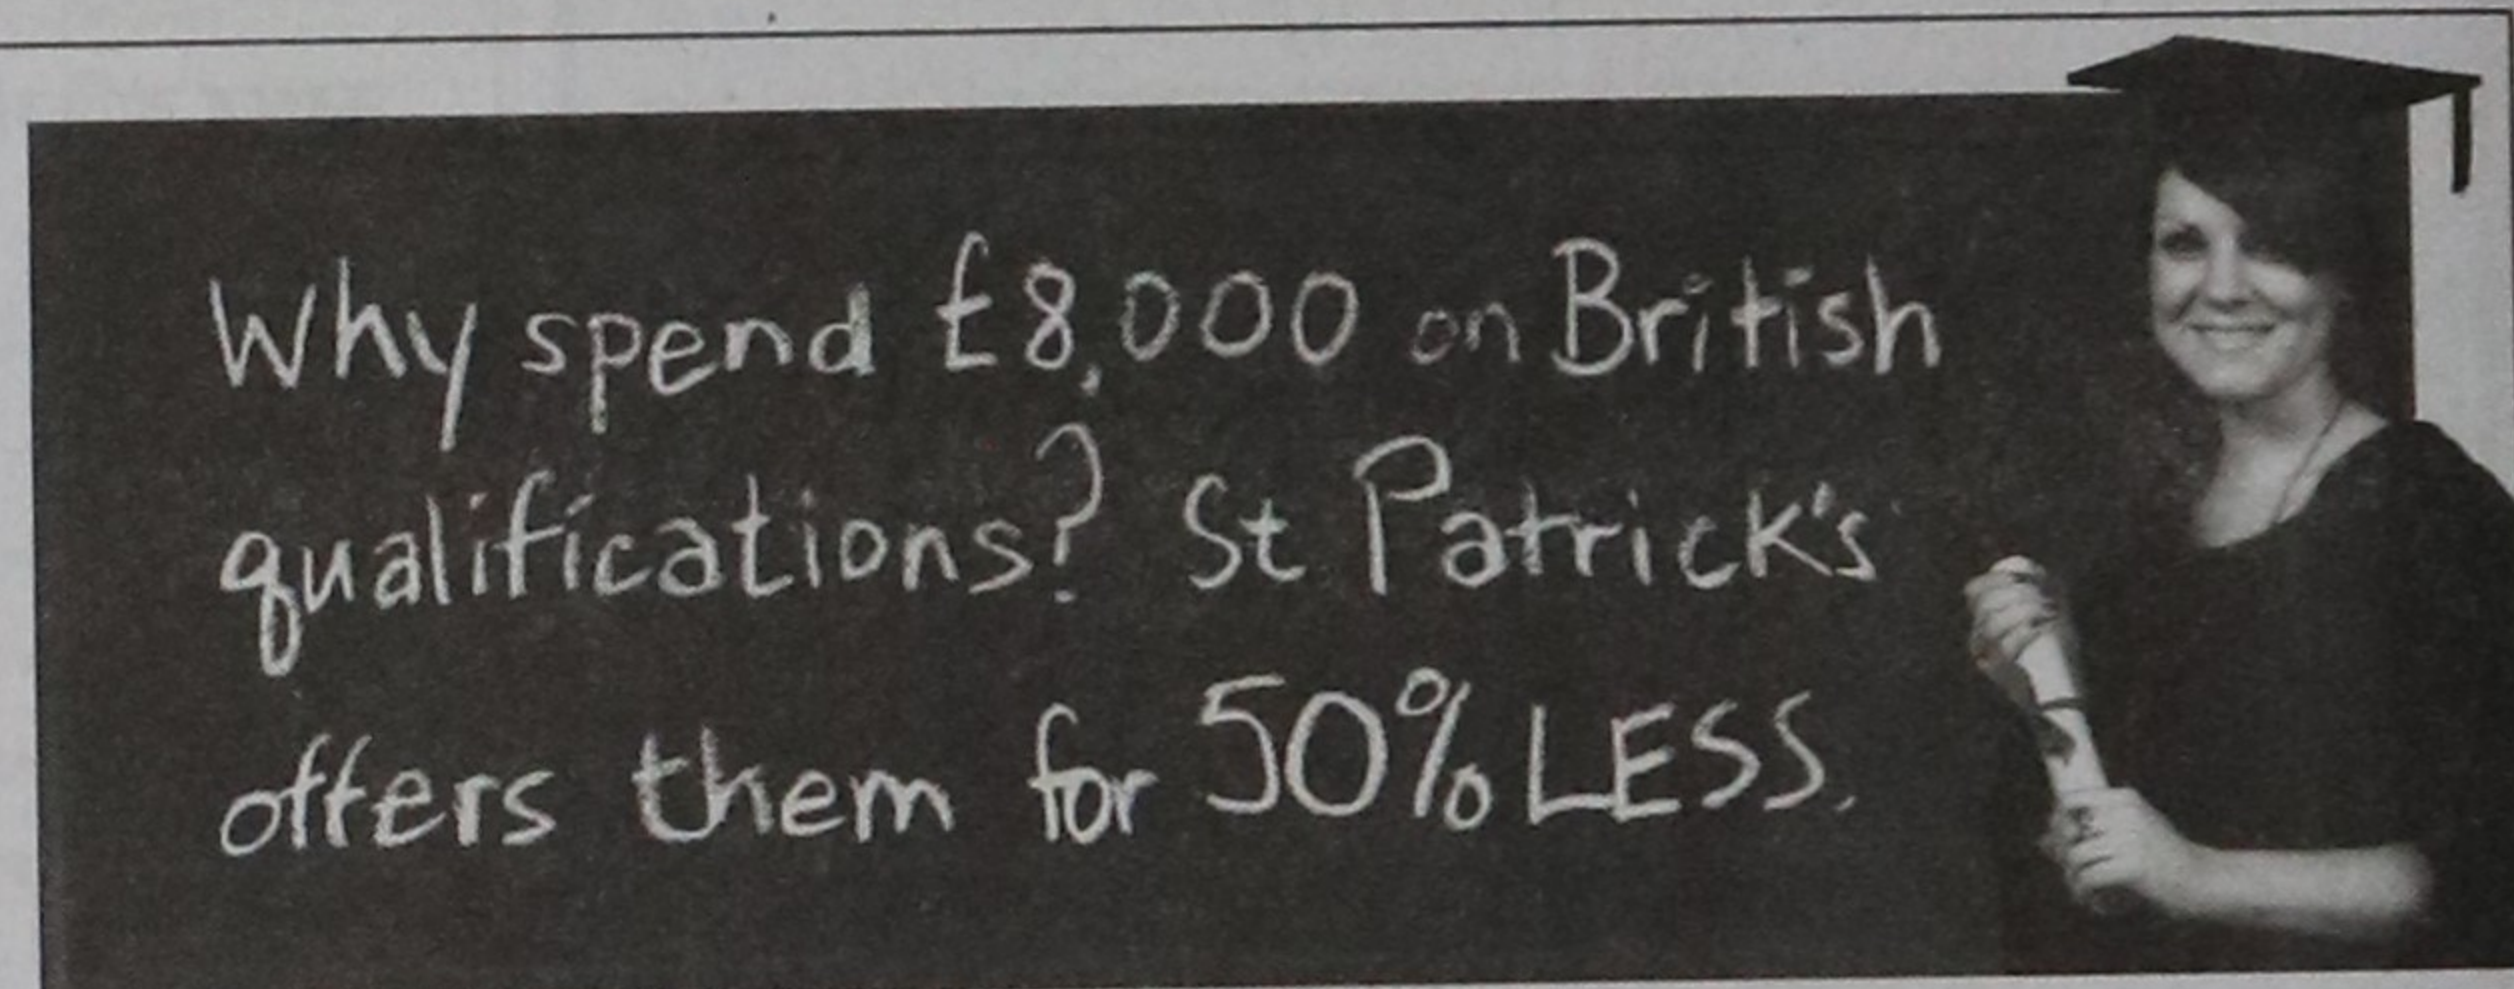 Why spend £8,000 on British
qualifications? St Patrick's
offers them for 50% LESS.